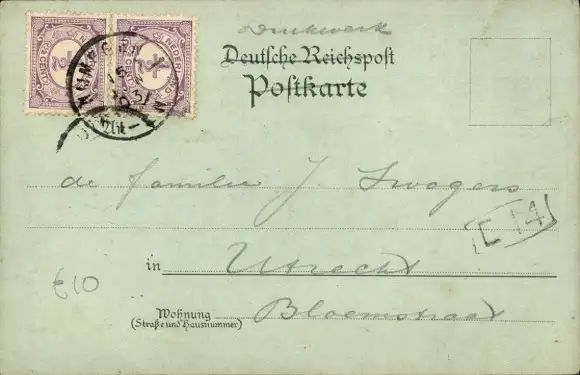 Drukwerk
Deutsche Reichspost
Postkarte
de familie J. Swagers
E 14
in Utrecht
€10
Wohnung Bloemstraat
(Straße und Hausnummer)